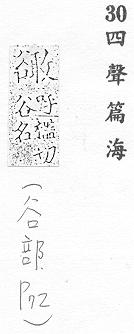 30 四聲篇海
呼濫切
谷名
(谷部 P72)